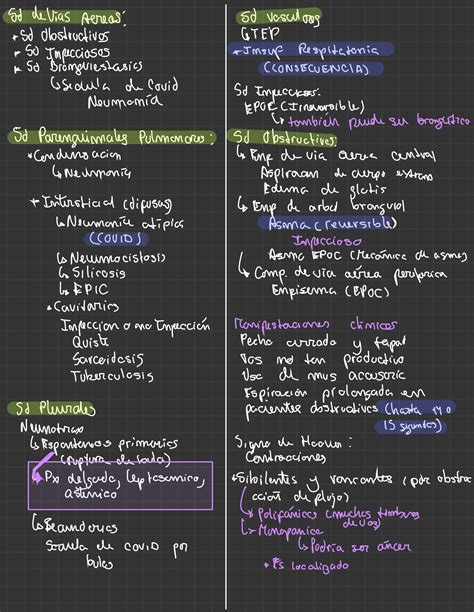 Sd de Vías Aereas:
Sd Obstructivos
Sd Infecciosos
Sd Bronquiestasias
Secuela de Covid
Neumonía
Sd Parenquimales Pulmonares:
Condensacion
Neumonía
Intersticial (difusas)
Neumonía atípica
(COVID)
Neumocistosis
Silicosis
EPIC
Cavitarios
Infeccion o no Infección
Quiste
Sarcoidosis
Tuberculosis
Sd Pleurales
Neumotorax
Espontaneos primarios
(ruptura de bula)
Px delgado, leptosomico,
asténico
Secundarios
Secuela de covid por
bulas
Sd Vascular
TEP
Insuf Respiratoria
(CONSECUENCIA)
Sd Infecciosos:
EPOC (Irreversible)
también puede ser bronquítico
Sd Obstructivos:
de via aerea central
Aspiracion de cuerpo extraño
Edema de glotis
de arbol bronquial
Asma (reversible)
Infeccioso
Asma EPOC (Mecánica de asma)
Comp. de via aérea periferica
Enfisema (EPOC)
Manifestaciones clinicas
Pecho cerrado y
Tos no tan productiva
Uso de mus accesorio
Espiración prolongada en
pacientes obstructivos (hasta
15 segundos)
Signo de Hoover:
Contracciones
Sibilantes y roncantes (por obstru
accion de flujo)
Polifónicas (muchos timbres
de voz)
Monofonica
Podria ser cáncer
Es localizado